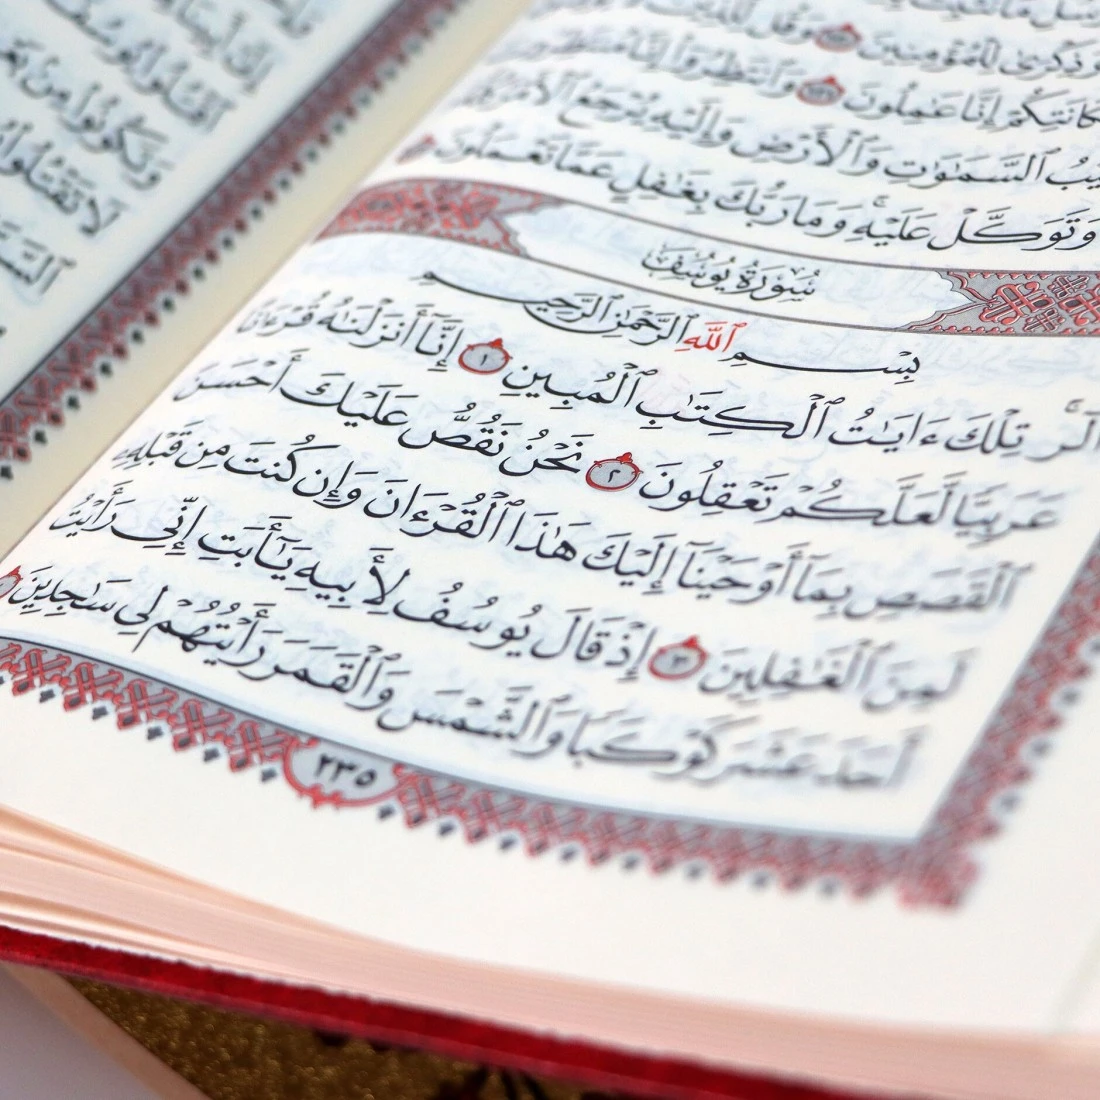 وَذِكْرَىٰ لِلْمُؤْمِنِينَ ١٢٠ وَقُل لِّلَّذِينَ
مَكَانَتِكُمْ إِنَّا عَٰمِلُونَ ١٢١ وَٱنتَظِرُوٓا۟ إِنَّا مُنتَظِرُونَ
غَيْبُ ٱلسَّمَٰوَٰتِ وَٱلْأَرْضِ وَإِلَيْهِ يُرْجَعُ ٱلْأَمْرُ
وَتَوَكَّلْ عَلَيْهِ ۚ وَمَا رَبُّكَ بِغَٰفِلٍ عَمَّا تَعْمَلُونَ
سُورَةُ يُوسُفَ
بِسْمِ ٱللَّهِ ٱلرَّحْمَٰنِ ٱلرَّحِيمِ
الٓر ۚ تِلْكَ ءَايَٰتُ ٱلْكِتَٰبِ ٱلْمُبِينِ ١ إِنَّآ أَنزَلْنَٰهُ قُرْءَٰنًا
عَرَبِيًّا لَّعَلَّكُمْ تَعْقِلُونَ ٢ نَحْنُ نَقُصُّ عَلَيْكَ أَحْسَنَ
ٱلْقَصَصِ بِمَآ أَوْحَيْنَآ إِلَيْكَ هَٰذَا ٱلْقُرْءَانَ وَإِن كُنتَ مِن قَبْلِهِۦ
لَمِنَ ٱلْغَٰفِلِينَ ٣ إِذْ قَالَ يُوسُفُ لِأَبِيهِ يَٰٓأَبَتِ إِنِّى رَأَيْتُ
أَحَدَ عَشَرَ كَوْكَبًا وَٱلشَّمْسَ وَٱلْقَمَرَ رَأَيْتُهُمْ لِى سَٰجِدِينَ
٢٣٥
ٱقْتُلُوا۟ يُوسُفَ
وَتَكُونُوا۟ مِنۢ
لَا تَقْتُلُوا۟